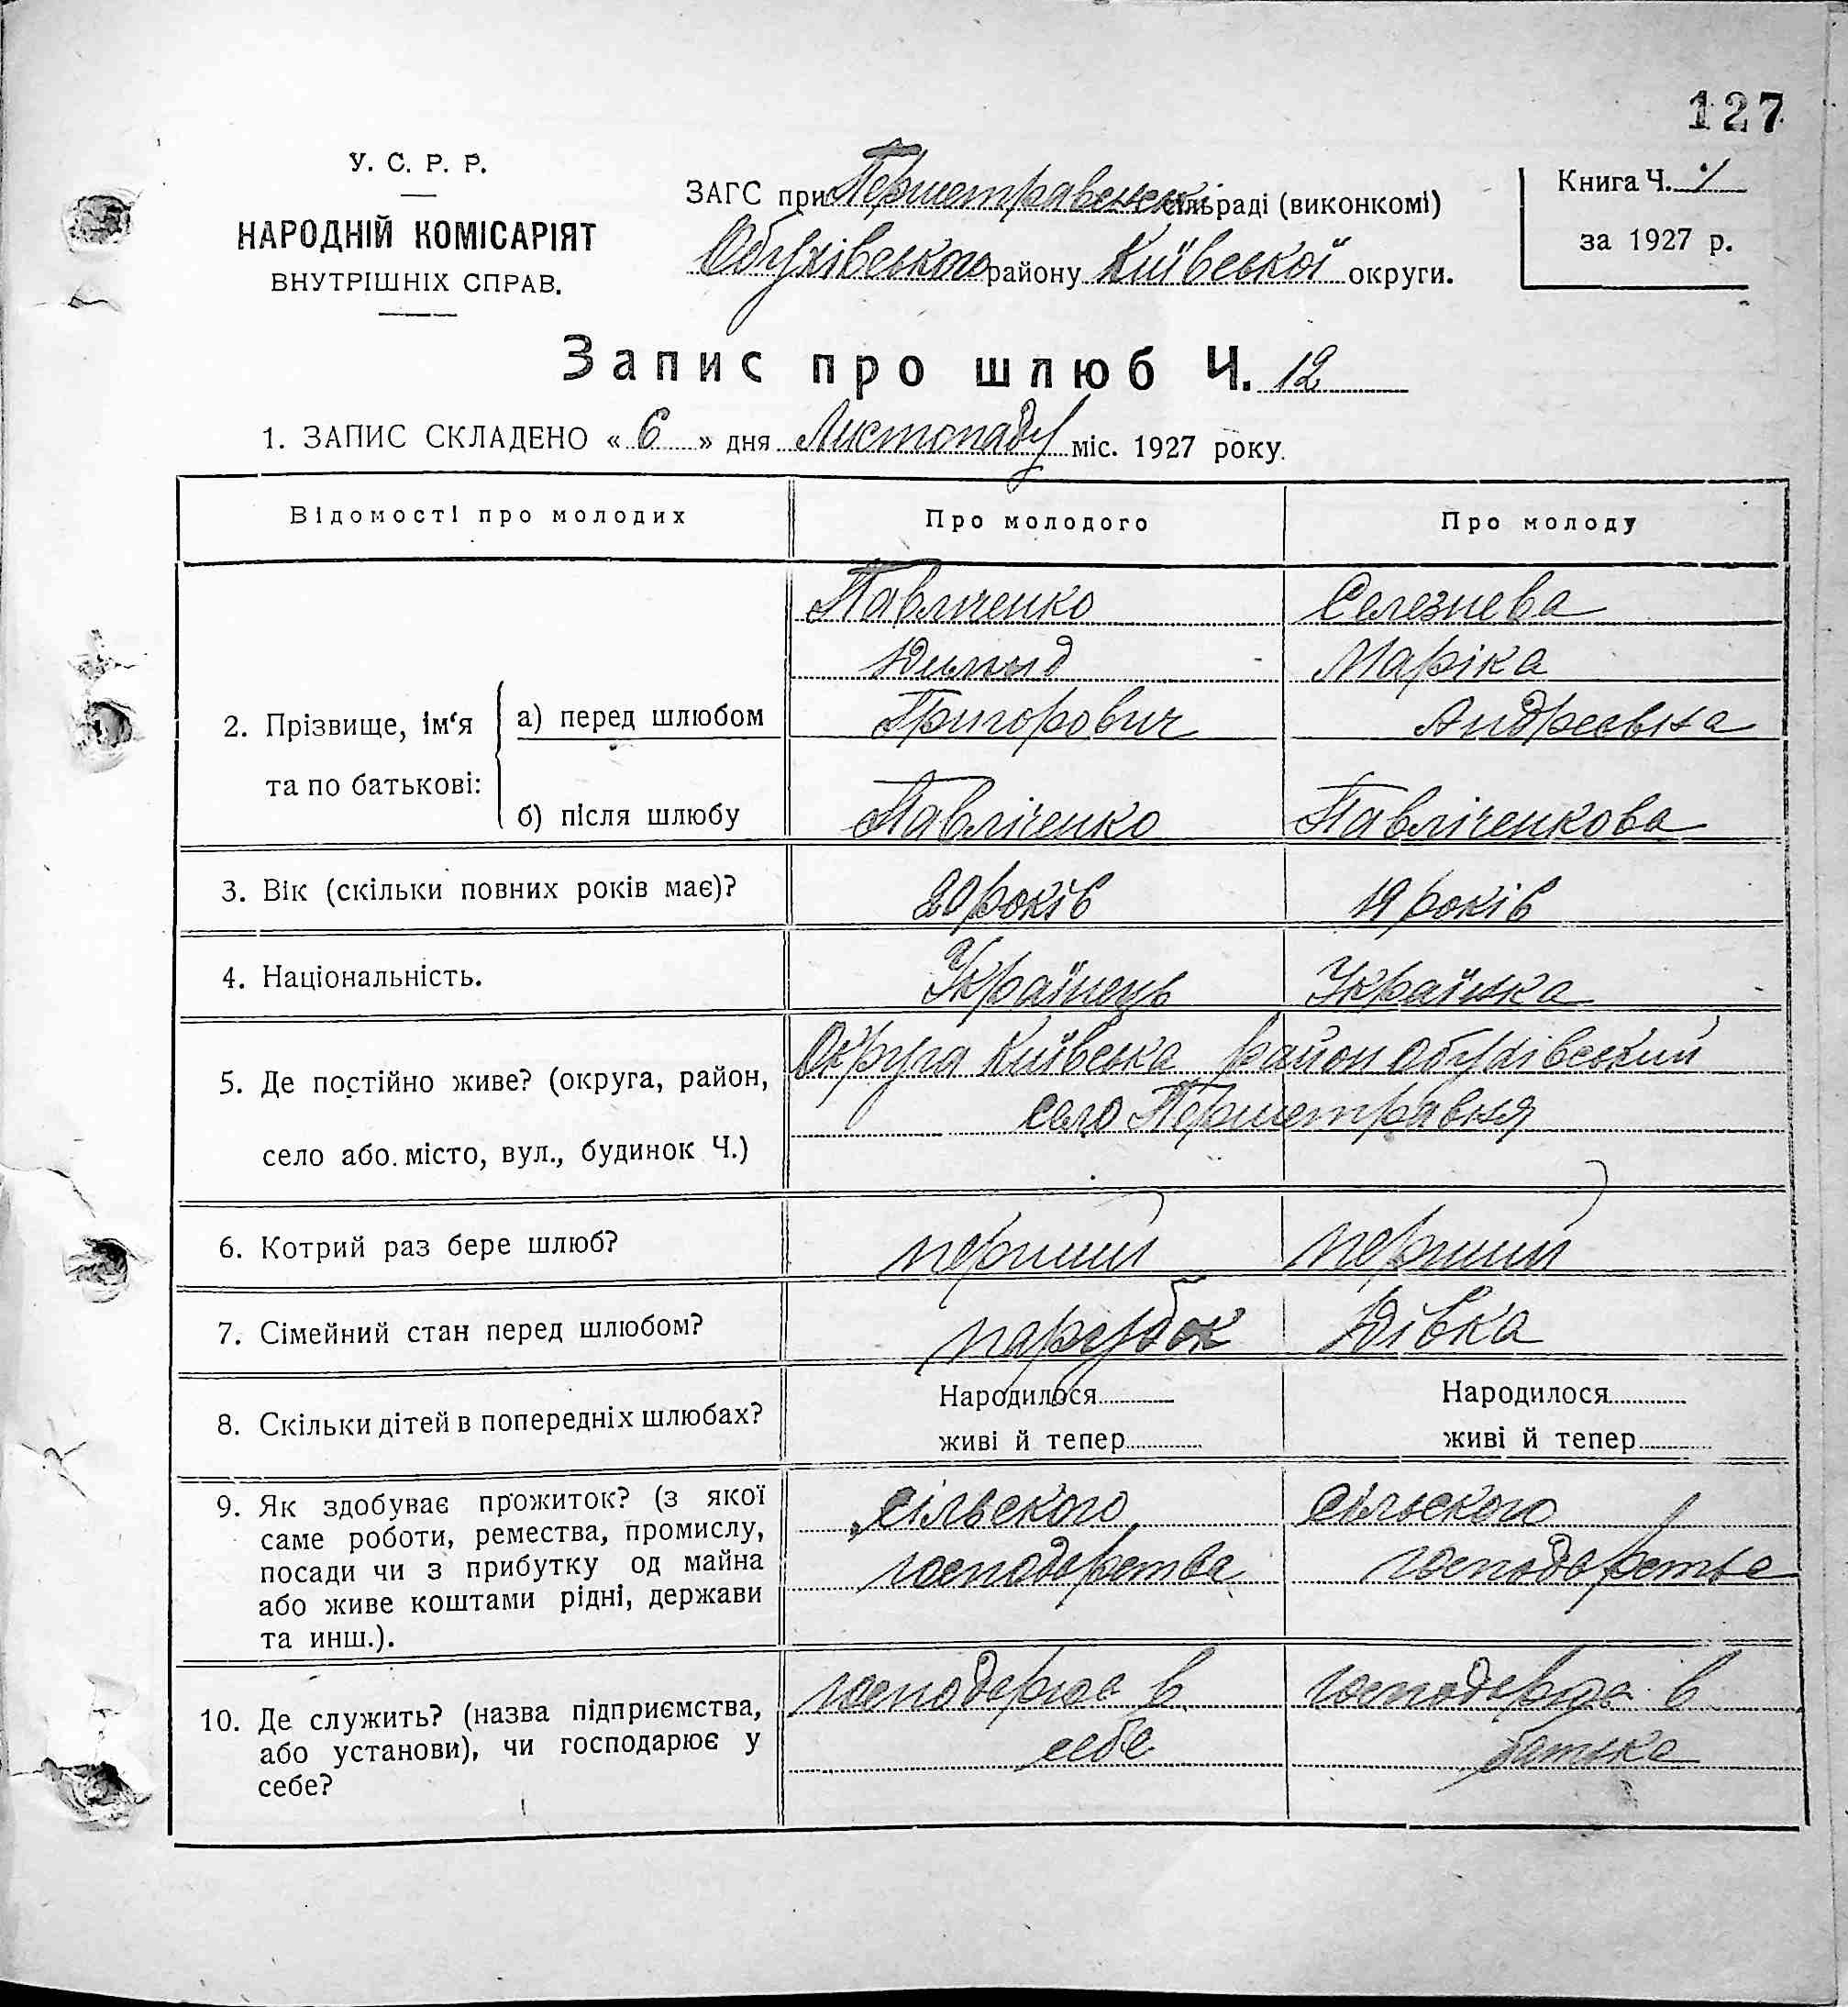 127
У. С. Р. Р.
НАРОДНІЙ КОМІСАРІЯТ
ВНУТРІШНІХ СПРАВ.
ЗАГС при Першетравенскі сільраді (виконкомі)
Обухівського району Київської округи.
Книга Ч. 1
за 1927 р.
Запис про шлюб Ч. 12
1. ЗАПИС СКЛАДЕНО « 6 » дня Листопаду міс. 1927 року.
Відомості про молодих
Про молодого
Про молоду
2. Прізвище, ім‘я та по батькові:
а) перед шлюбом
Павліченко
Григорович
Селезнева
Маріка
Андреевна
б) після шлюбу
Павліченко
Павліченкова
3. Вік (скільки повних років має)?
20 років
19 років
4. Національність.
Українець
Українка
5. Де постійно живе? (округа, район,
село або місто, вул., будинок Ч.)
Округа Київська район Обухівський
село Першетравня
6. Котрий раз бере шлюб?
перший
перший
7. Сімейний стан перед шлюбом?
парубок
Дівка
8. Скільки дітей в попередніх шлюбах?
Народилося
живі й тепер
Народилося
живі й тепер
9. Як здобуває прожиток? (з якої
саме роботи, ремества, промислу,
посади чи з прибутку од майна
або живе коштами рідні, держави
та инш.).
сільского
господарства
сільского
господарства
10. Де служить? (назва підприємства,
або установи), чи господарює у
себе?
господарює в
себе
господарює в
батька